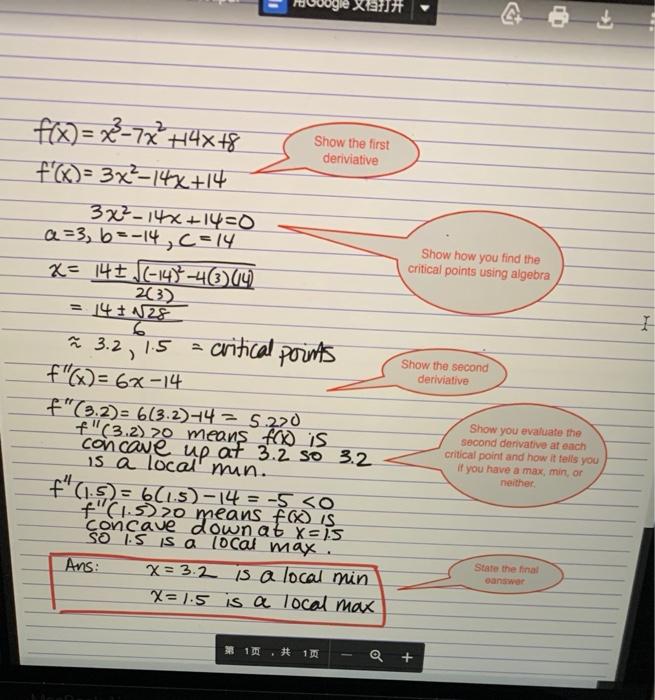 用Google 文档打开
f(x) = x³-7x²+14x+8
Show the first
deriviative
f'(x) = 3x²-14x+14
3x²-14x+14=0
a=3, b=-14, c=14
Show how you find the
critical points using algebra
x = 14± √(-14)²-4(3)(14)
2(3)
= 14 ± √28
6
≈ 3.2, 1.5 = critical points
Show the second
deriviative
f"(x)= 6x-14
f"(3.2)= 6(3.2)-14 = 5.2>0
f"(3.2)>0 means f(x) is
concave up at 3.2 so 3.2
is a local min.
Show you evaluate the
second derivative at each
critical point and how it tells you
if you have a max, min, or
neither.
f"(1.5)= 6(1.5)-14 = -5 <0
f"(1.5)>0 means f(x) is
concave down at x=1.5
so 1.5 is a local max.
Ans: x = 3.2 is a local min
x=1.5 is a local max
State the final
oanswer
第 1页 , 共 1页 − +